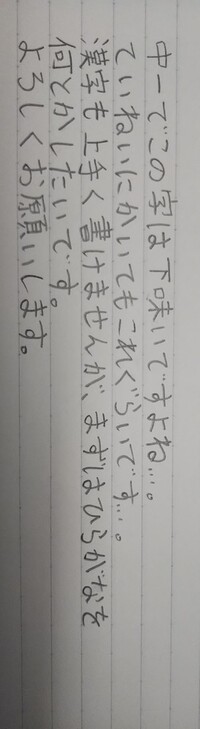 中一でこの字は下味いですよね…。
ていねいにかいてもこれぐらいです…。
漢字も上手く書けませんが、まずはひらがなを
何とかしたいです。
よろしくお願いします。